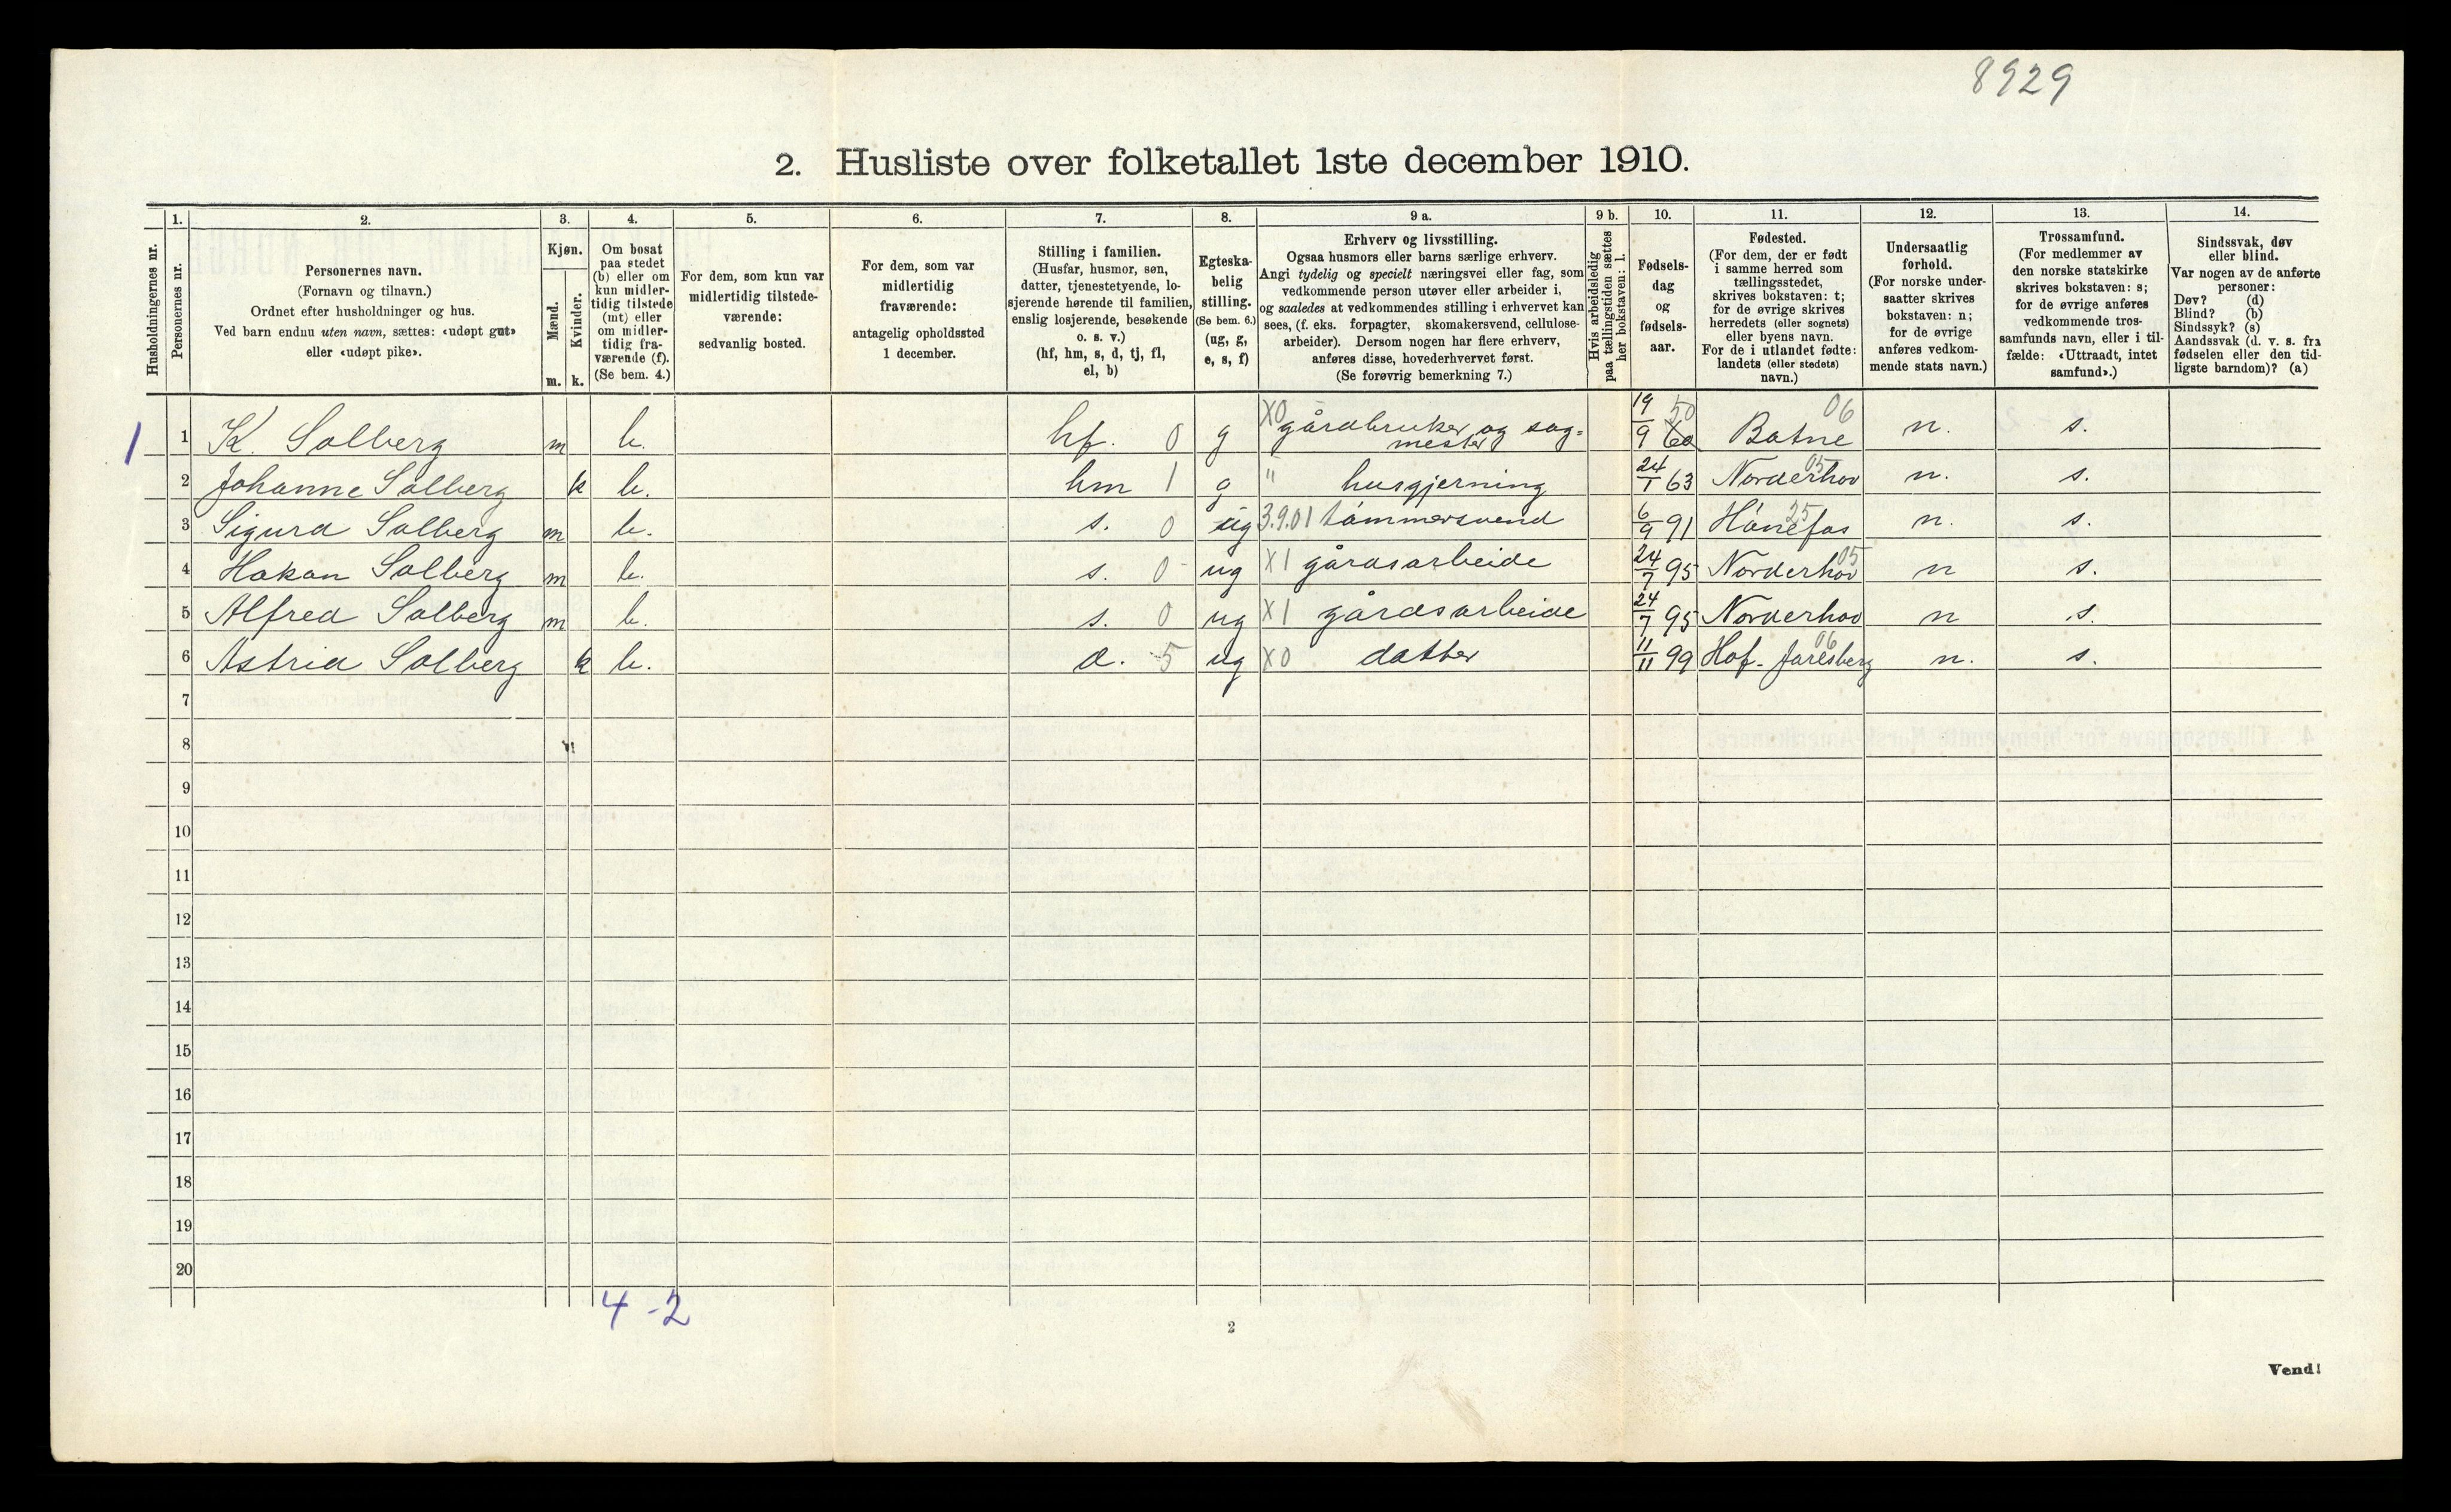 8929
2. Husliste over folketallet 1ste december 1910.
Husholdningernes nr.
1.
Personernes nr.
2.
Personernes navn.
(Fornavn og tilnavn.)
Ordnet efter husholdninger og hus.
Ved barn endnu uten navn, sættes: «udøpt gut»
eller «udøpt pike».
3.
Kjøn.
Mænd.
Kvinder.
m. k.
4.
Om bosat
paa stedet
(b) eller om
kun midler-
tidig tilstede
(mt) eller
om midler-
tidig fra-
værende (f).
(Se bem. 4.)
5.
For dem, som kun var
midlertidig tilstede-
værende:
sedvanlig bosted.
6.
For dem, som var
midlertidig
fraværende:
antagelig opholdssted
1 december.
7.
Stilling i familien.
(Husfar, husmor, søn,
datter, tjenestetyende, lo-
sjerende hørende til familien,
enslig losjerende, besøkende
o. s. v.)
(hf, hm, s, d, tj, fl,
el, b)
8.
Egteska-
belig
stilling.
(Se bem. 6.)
(ug, g,
e, s, f)
9 a.
Erhverv og livsstilling.
Ogsaa husmors eller barns særlige erhverv.
Angi tydelig og specielt næringsvei eller fag, som
vedkommende person utøver eller arbeider i,
og saaledes at vedkommendes stilling i erhvervet kan
sees, (f. eks. forpagter, skomakersvend, cellulose-
arbeider). Dersom nogen har flere erhverv,
anføres disse, hovederhvervet først.
(Se forøvrig bemerkning 7.)
9 b.
Hvis arbeidsledig
paa tællingstiden sættes
her bokstaven: l.
10.
Fødsels-
dag
og
fødsels-
aar.
11.
Fødested.
(For dem, der er født
i samme herred som
tællingsstedet,
skrives bokstaven: t;
for de øvrige skrives
herredets (eller sognets)
eller byens navn.
For de i utlandet fødte:
landets (eller stedets)
navn.)
12.
Undersaatlig
forhold.
(For norske under-
saatter skrives
bokstaven: n;
for de øvrige
anføres vedkom-
mende stats navn.)
13.
Trossamfund.
(For medlemmer av
den norske statskirke
skrives bokstaven: s;
for de øvrige anføres
vedkommende tros-
samfunds navn, eller i til-
fælde: «Uttraadt, intet
samfund».)
14.
Sindssvak, døv
eller blind.
Var nogen av de anførte
personer:
Døv? (d)
Blind? (b)
Sindssyk? (s)
Aandssvak (d. v. s. fra
fødselen eller den tid-
ligste barndom)? (a)
1 1 K. Solberg m b. hf. 0 g X0 gårdbruker og sag= mester 19/9 60 50 Botne 06 n. s.
2 Johanne Solberg k b. hm 1 g " husgjerning 24/1 63 Norderhov 05 n. s.
3 Sigurd Solberg m b. s. 0 ug 3.9.01 tømmersvend 6/9 91 Hønefos 25 n. s.
4 Hakon Solberg m b. s. 0 ug X1 gårdsarbeide 24/7 95 Norderhov 05 n s.
5 Alfred Solberg m b. s. 0 ug X1 gårdsarbeide 24/7 95 Norderhov n s.
6 Astrid Solberg k b. d. 5 ug X0 datter 11/11 99 Hof-Jarlsberg 06 n. s.
7
8
9
10
11
12
13
14
15
16
17
18
19
20
4-2
2
Vend!